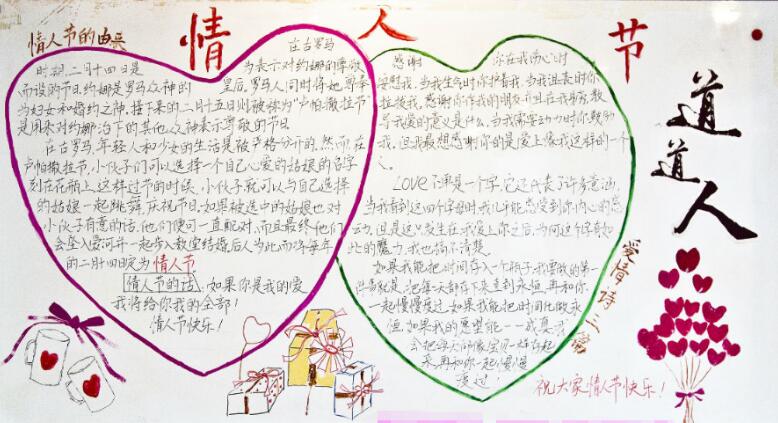 情人节
情人节的由来
在古罗马
时期,二月十四日是 为表示对约娜的尊敬
而设的节日约娜是罗马众神的 皇后,罗马人同时将她尊奉
为妇女和婚约之神,接下来的二月十五日则被称为“卢帕撒拉节”
是用来对约娜治下的其他众神表示尊敬的节日
在古罗马,年轻人和少女的生活是被严格分开的,然而,在
卢帕撒拉节,小伙子们可以选择一个自己心爱的姑娘的名字
刻在花瓶上,这样过节的时候,小伙子就可以与自己选择
的姑娘一起跳舞,庆祝节日.如果被选中的姑娘也对
小伙子有意的话,他们便可一直配对,而且最终他们
会坠入爱河并一起步入教堂结婚后人为此而将每年
的二月十四定为情人节
情人节的话,如果你是我的爱
我将给你我的全部!
情人节快乐!
感谢 你在我伤心时
安慰我,当我生气时你护着我,当我沮丧时你
拉拔我.感谢你作我的朋友并且在我旁,教
导我爱的意义是什么,当我需要动力时你鼓励
我,但我最想感谢你的是爱上像我这样的一个
人.
LOVE不单是一个字,它还代表了许多意涵,
当我看到这四个字母时我几乎能感受到你内心的感
动,但是这只发生在我爱上你之后,为何这个字有如
此的魔力,我也搞不清楚.
如果我能把时间存入一个瓶子,我要做的第一
件事就是,把每一天都存下来直到永恒,再和你
一起慢慢度过,如果我能把时间化做永
恒,如果我的愿望能一一成真,
会把每天都像宝贝一样存起
来再和你一起慢慢
度过!
爱情诗三篇
道道人
祝大家情人节快乐!